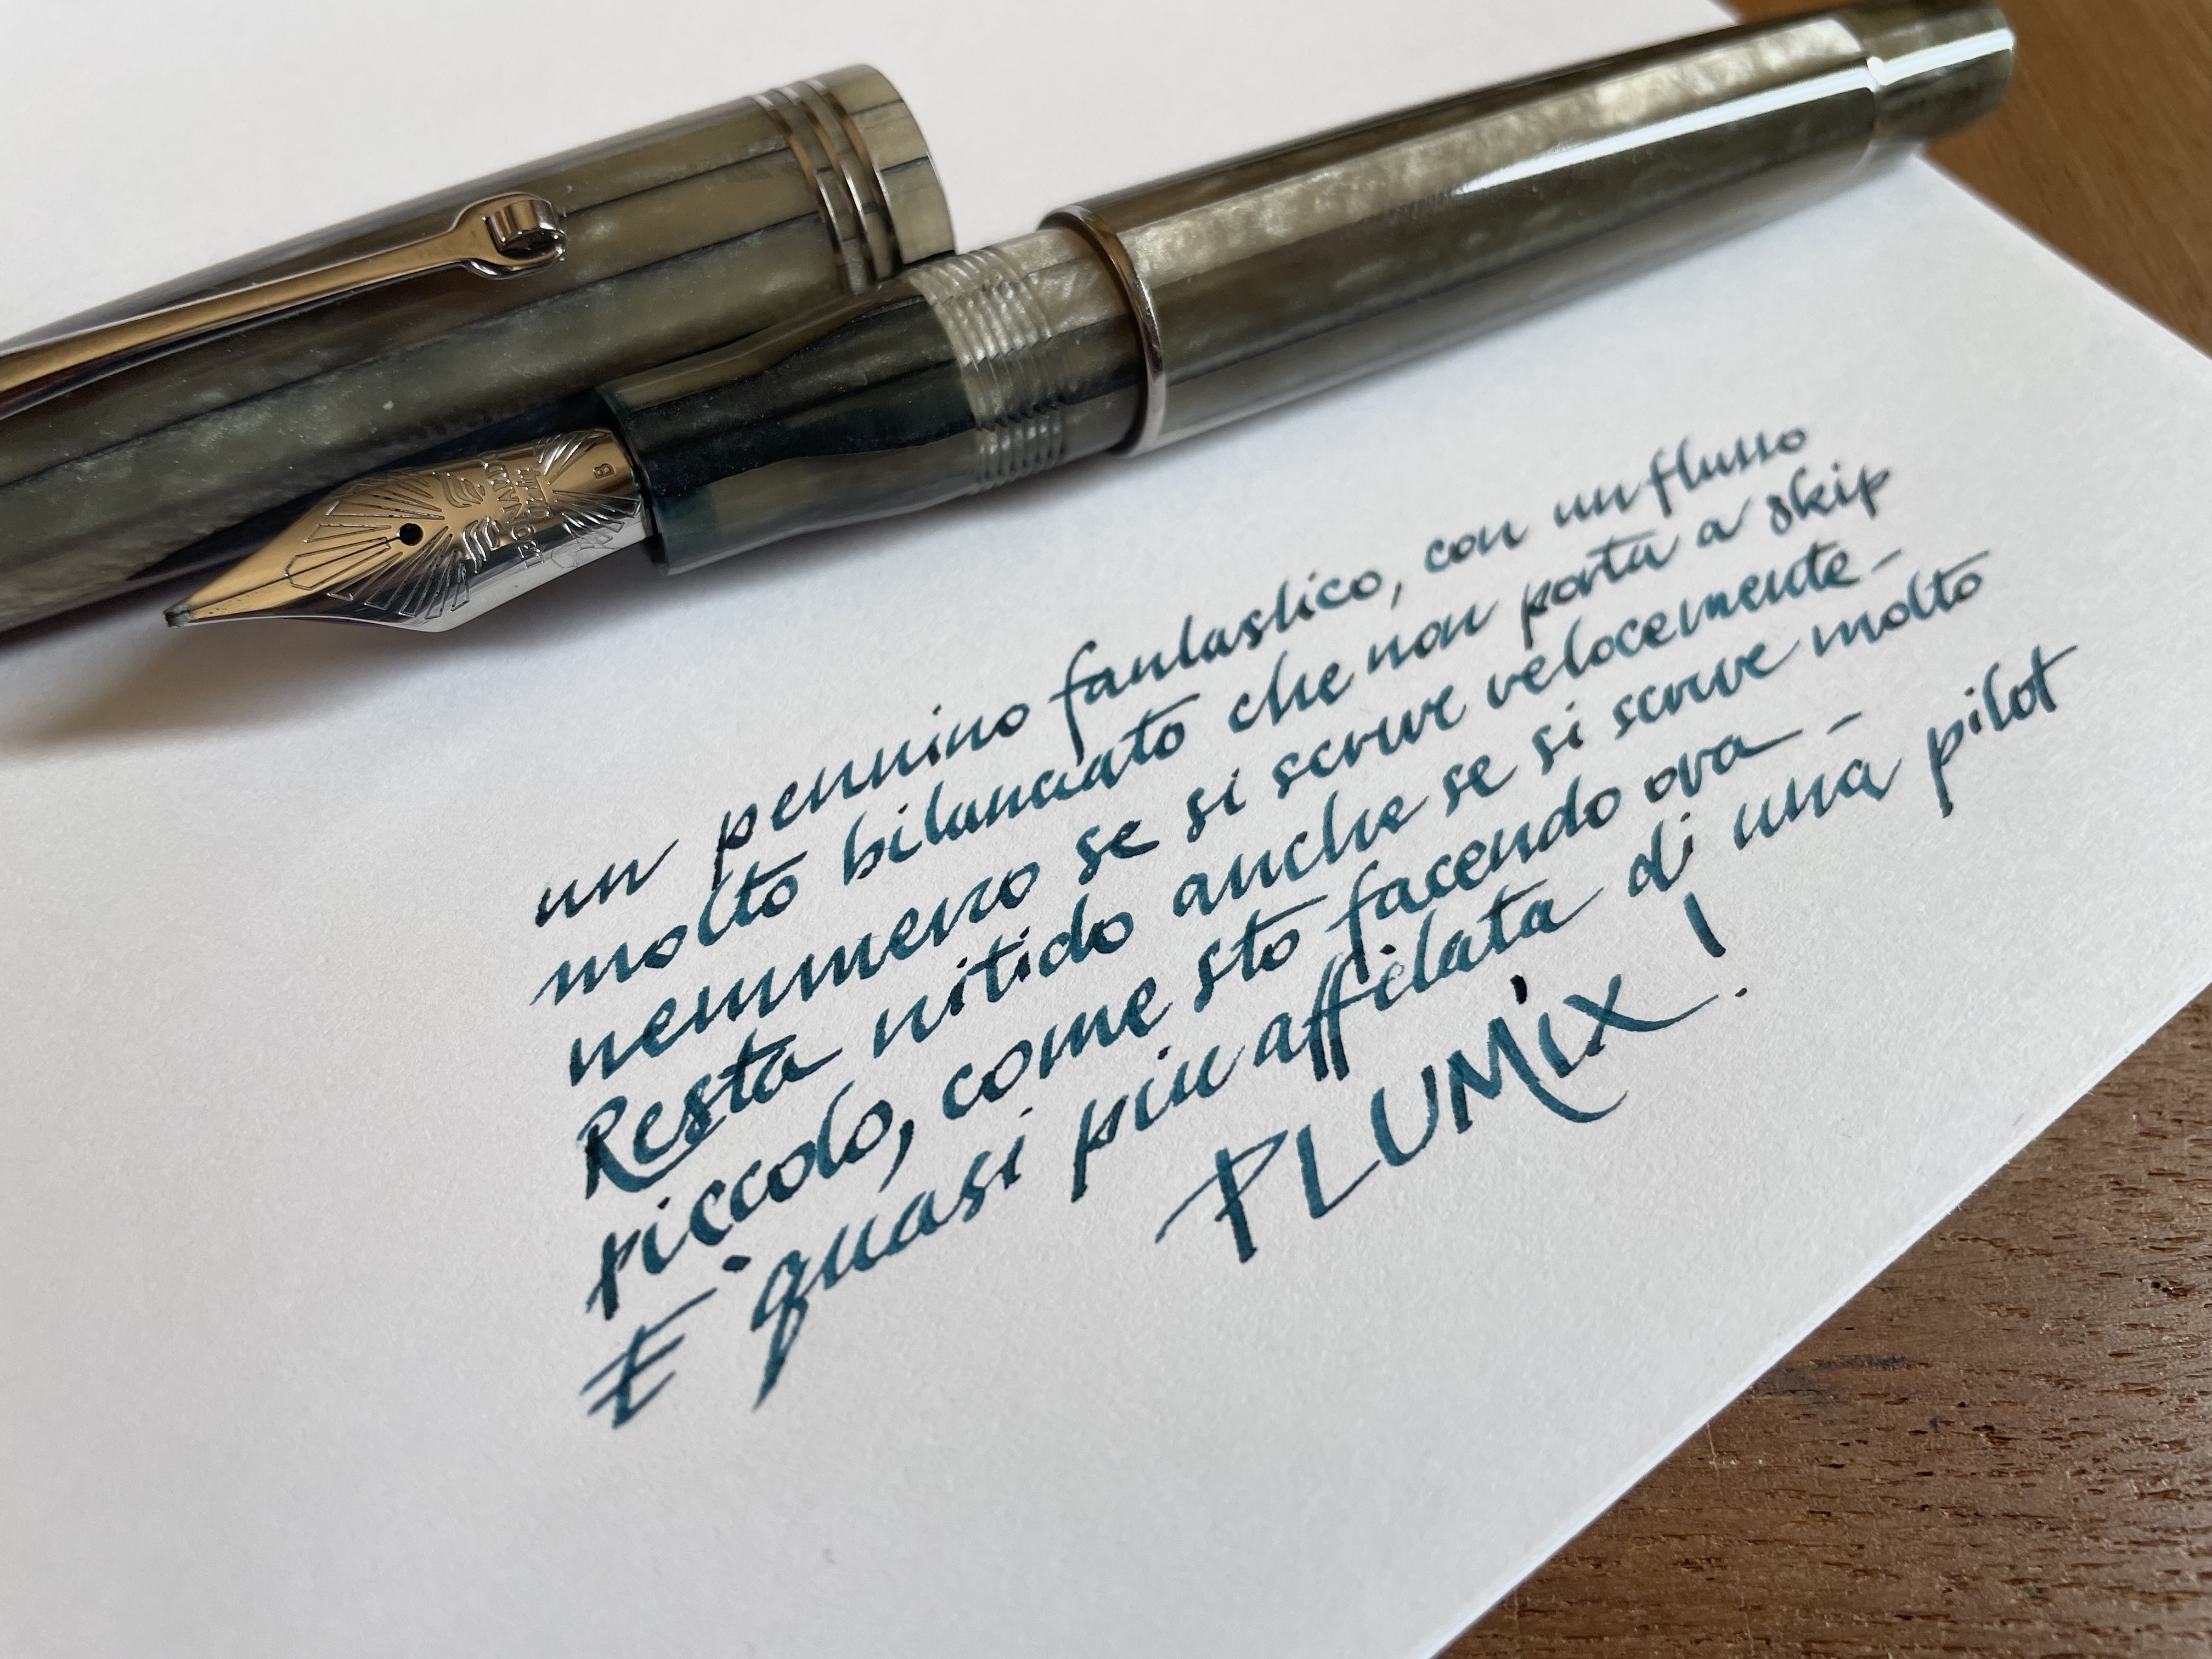 LEONARDO
OFFICINA
B
un pennino fantastico, con un flusso
molto bilanciato che non porta a skip
nemmeno se si scrive velocemente -
Resta nitido anche se si scrive molto
piccolo, come sto facendo ora -
E' quasi più affilata di una pilot
PLUMIX!